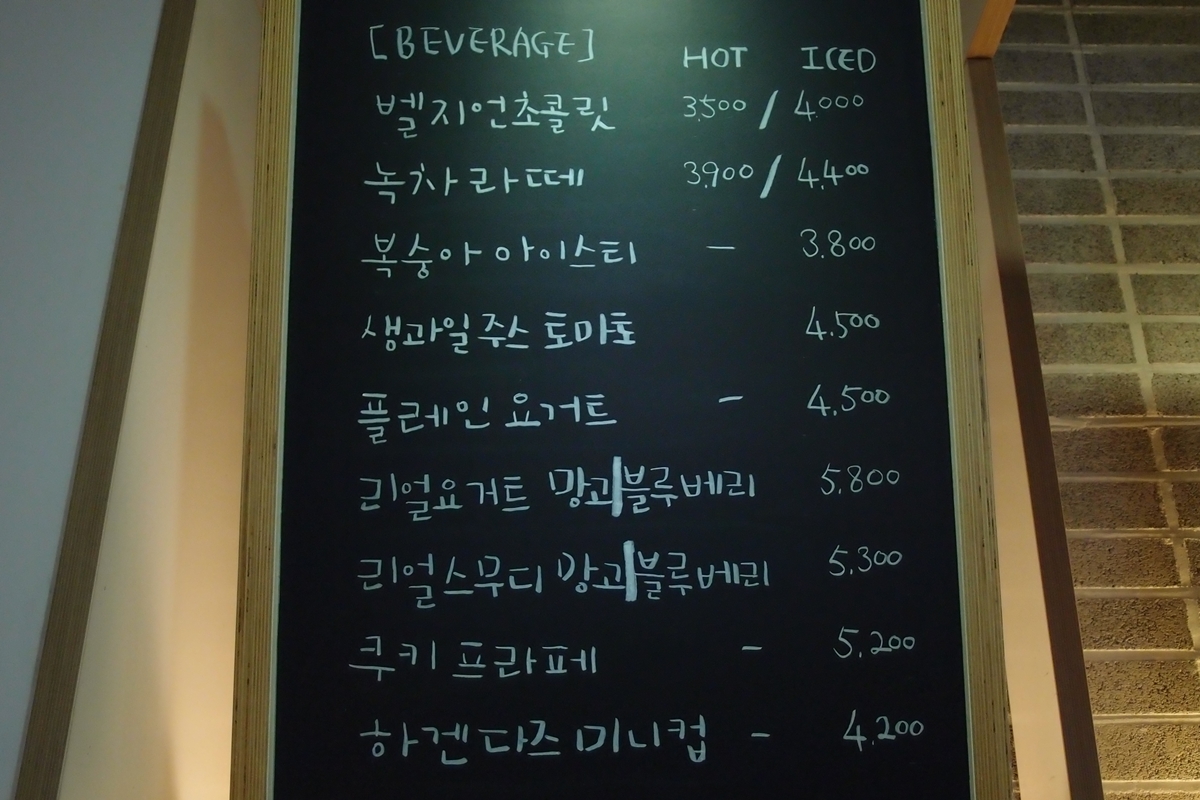 [BEVERAGE] HOT ICED
벨지언초콜릿 3.500 / 4.000
녹차라떼 3.900 / 4.400
복숭아 아이스티 - 3.800
생과일주스 토마토 4.500
플레인 요거트 - 4.500
리얼요거트 망고|블루베리 5.800
리얼스무디 망고|블루베리 5.300
쿠키 프라페 - 5.200
하겐다즈 미니컵 - 4.200